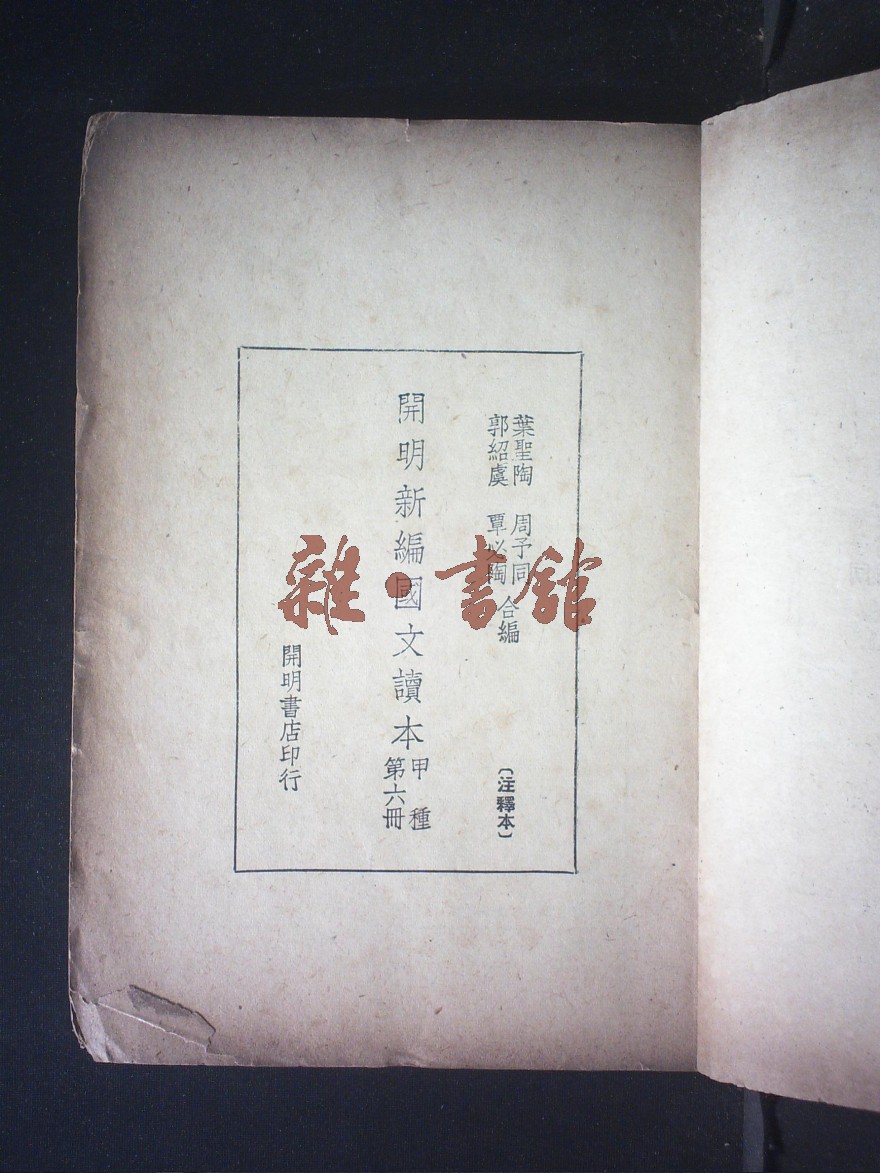 葉聖陶 周予同
郭紹虞 覃必陶 合編
〔注釋本〕
開明新編國文讀本 甲種
第六冊
開明書店印行
雜·書館